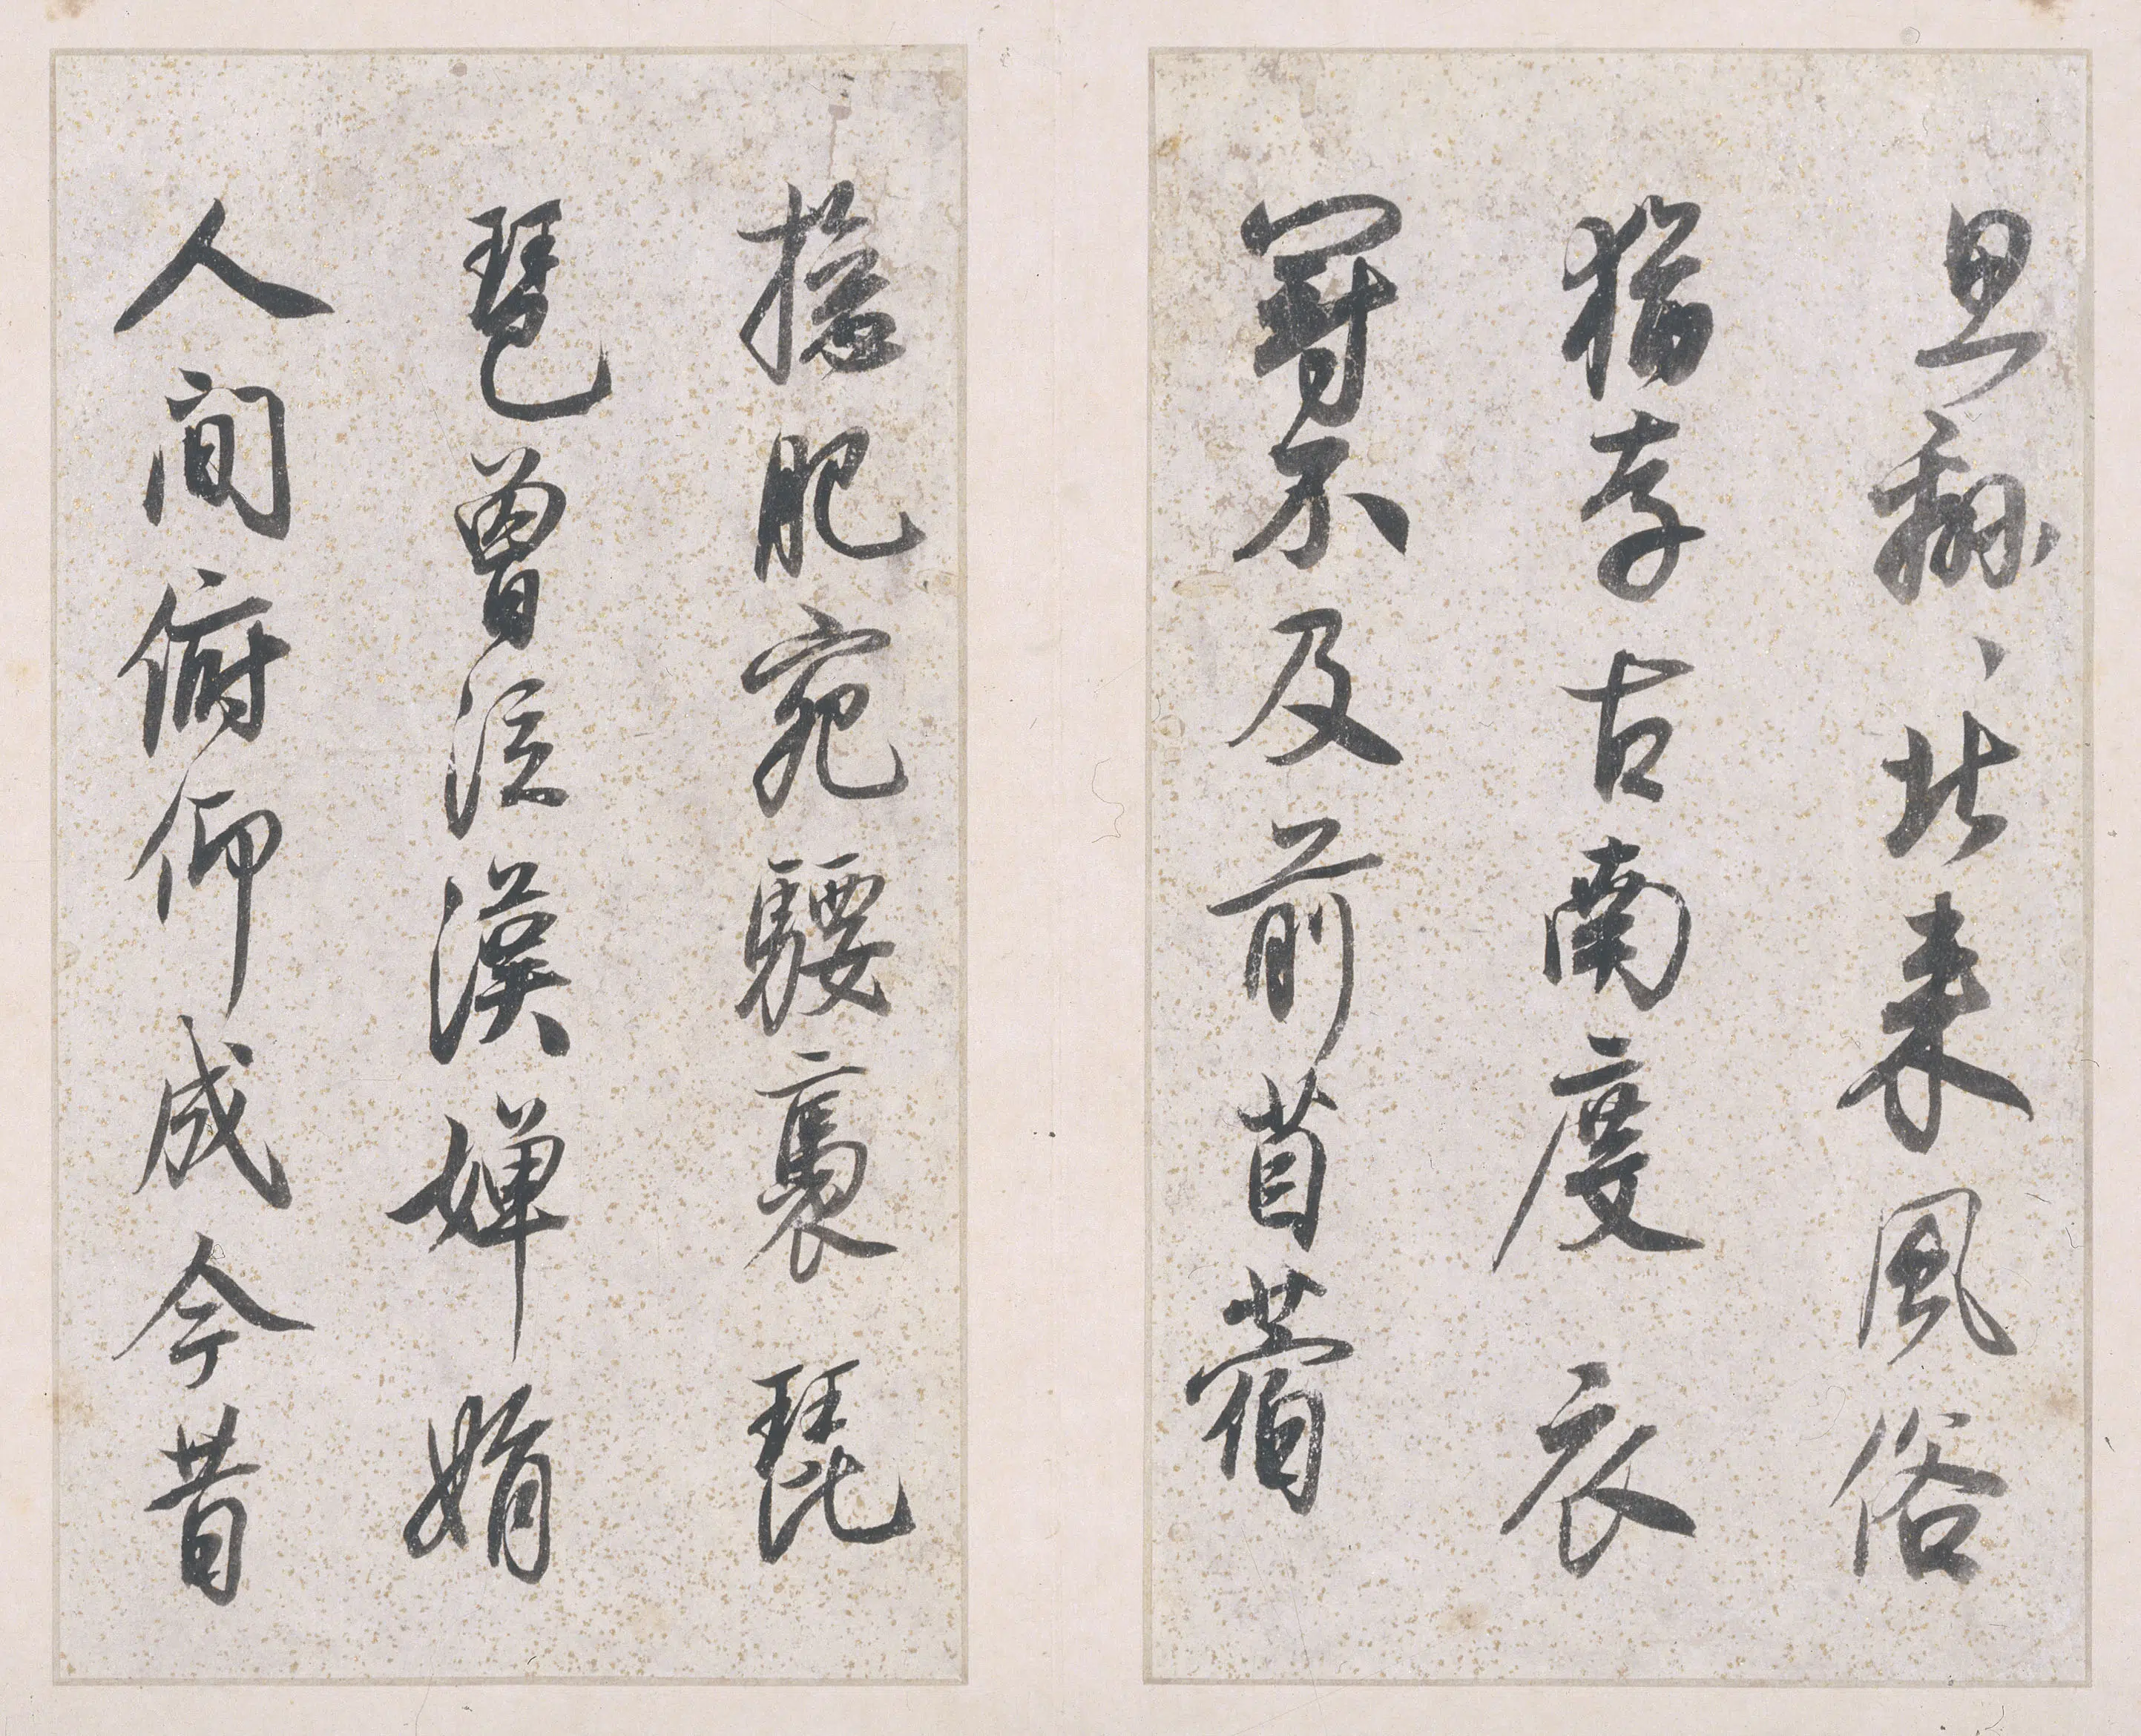 思緜、北来風俗
猶存古南度衣
冠不及前苜蓿
摠肥宛騕褭琵
琶曾泣漢嬋娟
人間俯仰成今昔